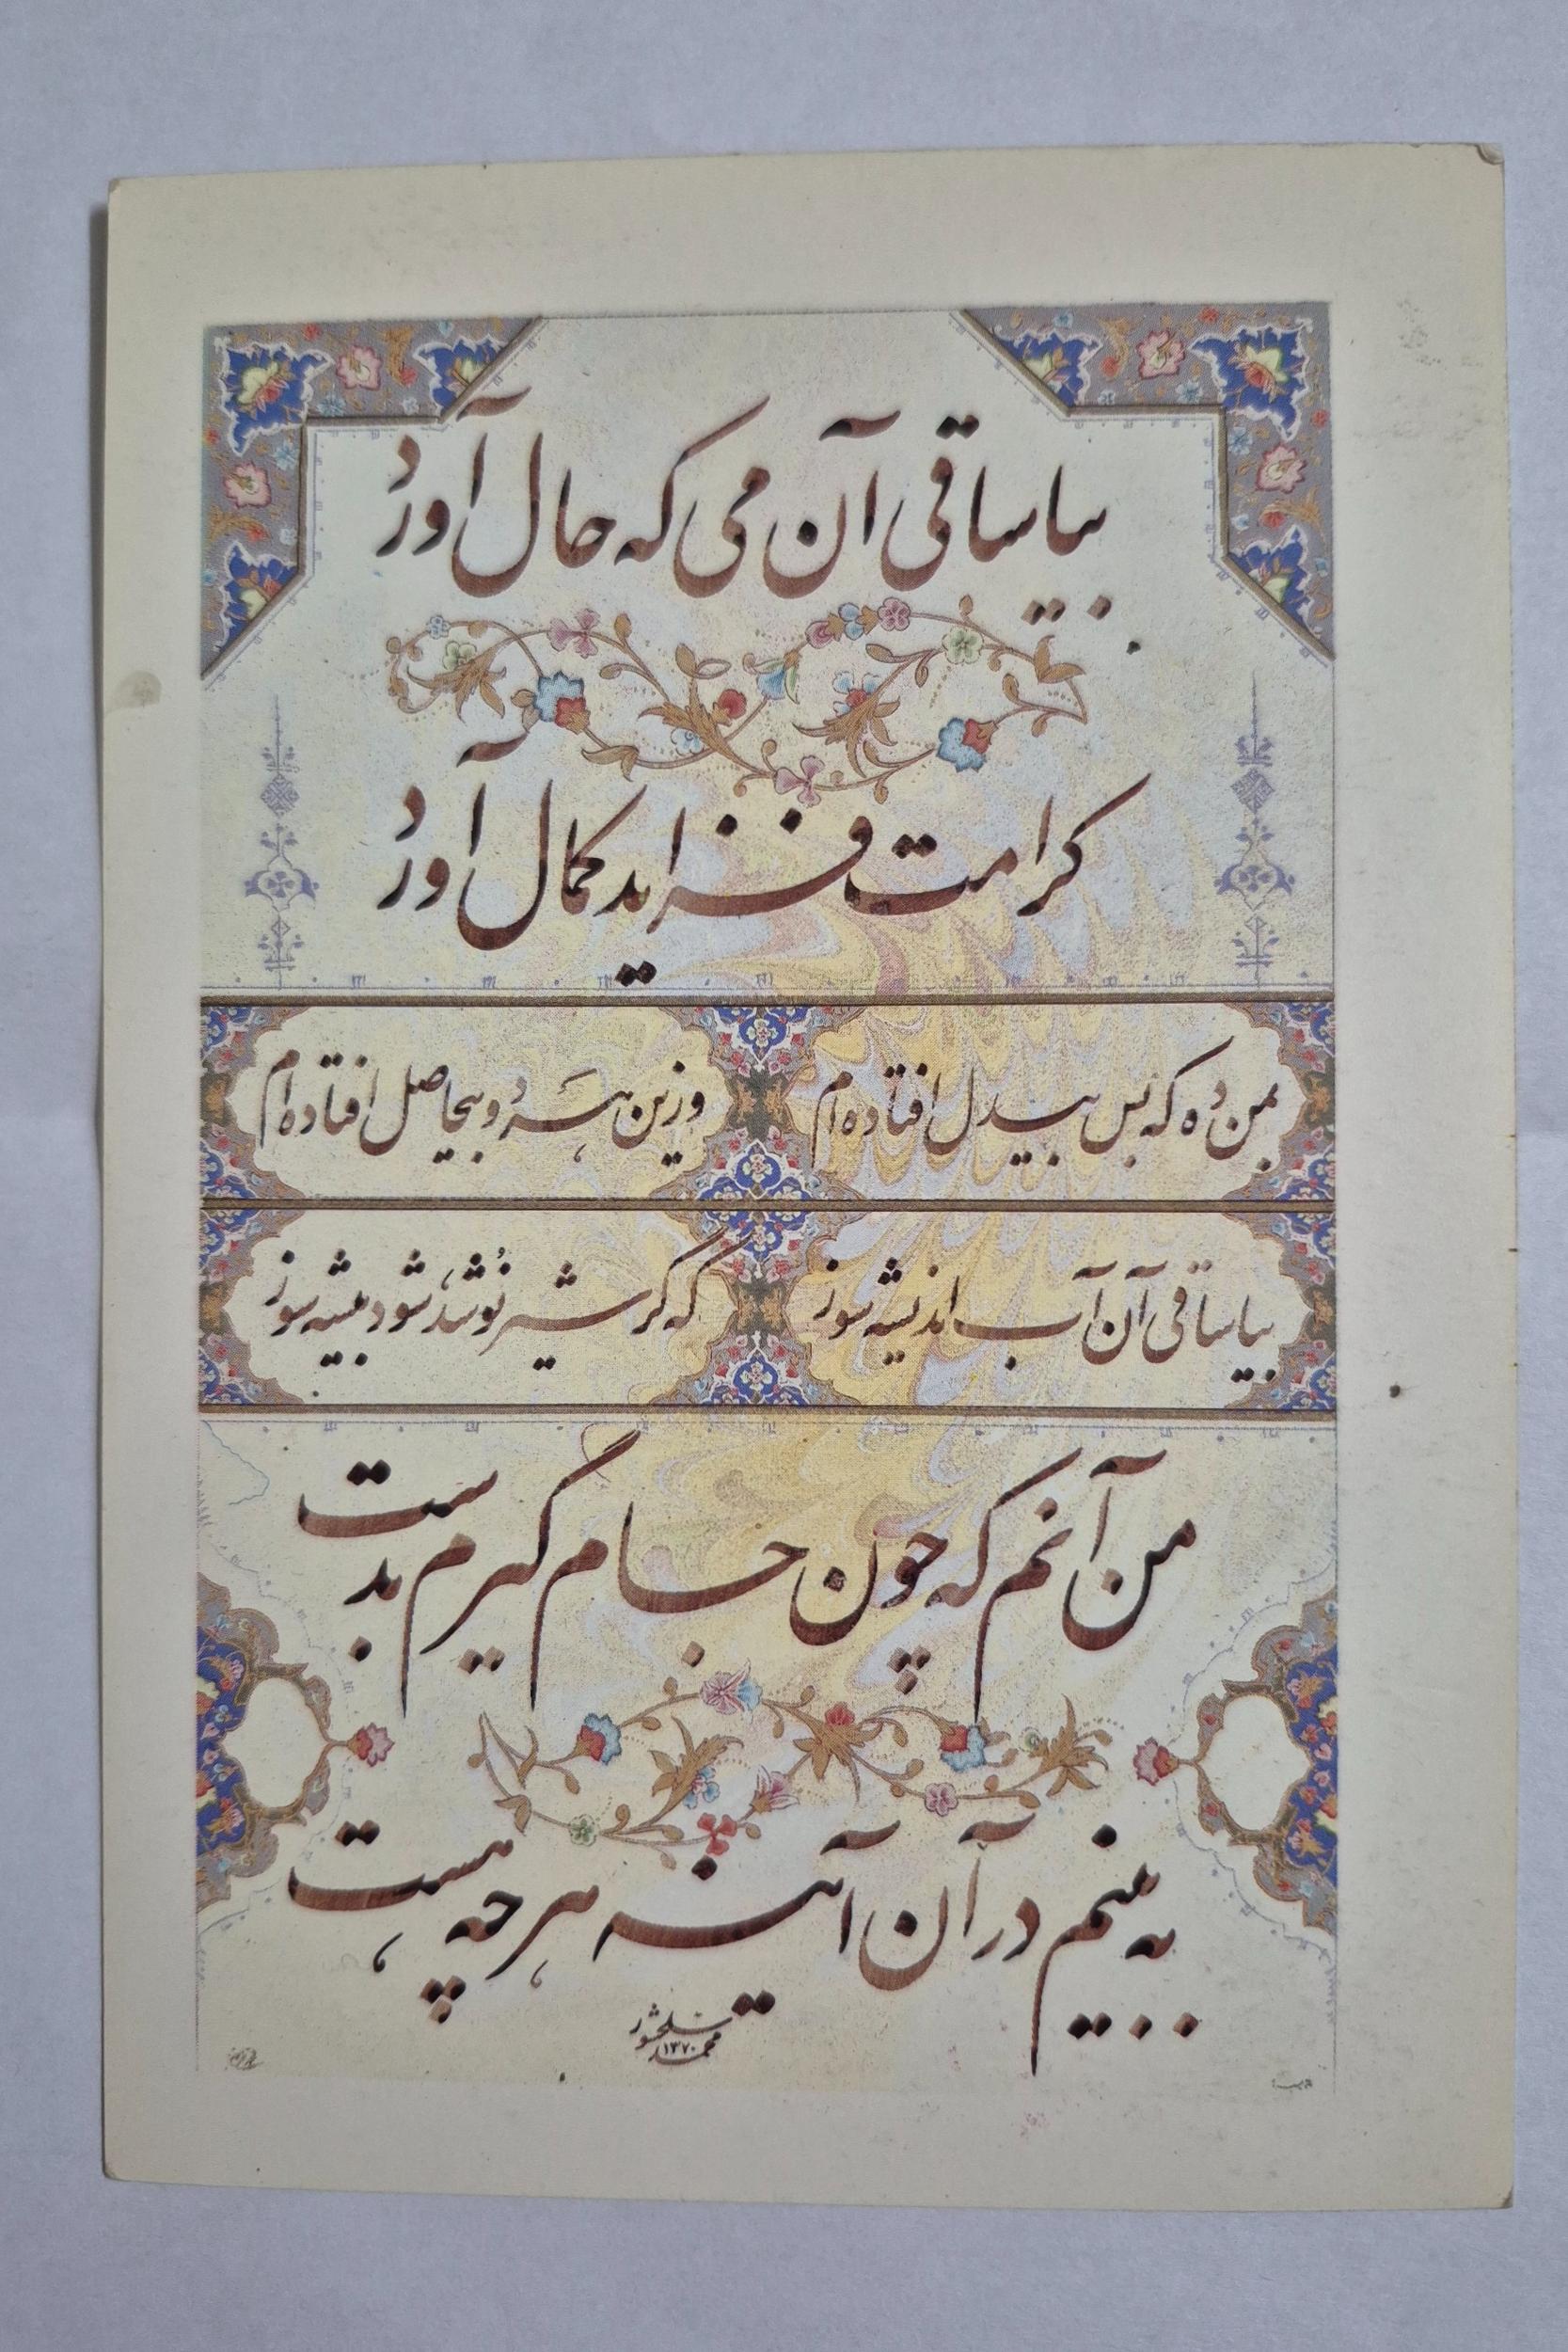 بیا ساقی آن می که حال آورد
کرامت فزاید کمال آورد
بمن ده که بس بیدل افتاده‌ام
وزین هر دو بیحاصل افتاده‌ام
بیا ساقی آن آب اندیشه سوز
که گر شیر نوشد شود بیشه سوز
من آنم که چون جام گیرم بدست
به بینم در آن آینه هر چه هست
محمد سلحشور
۱۳۷۰